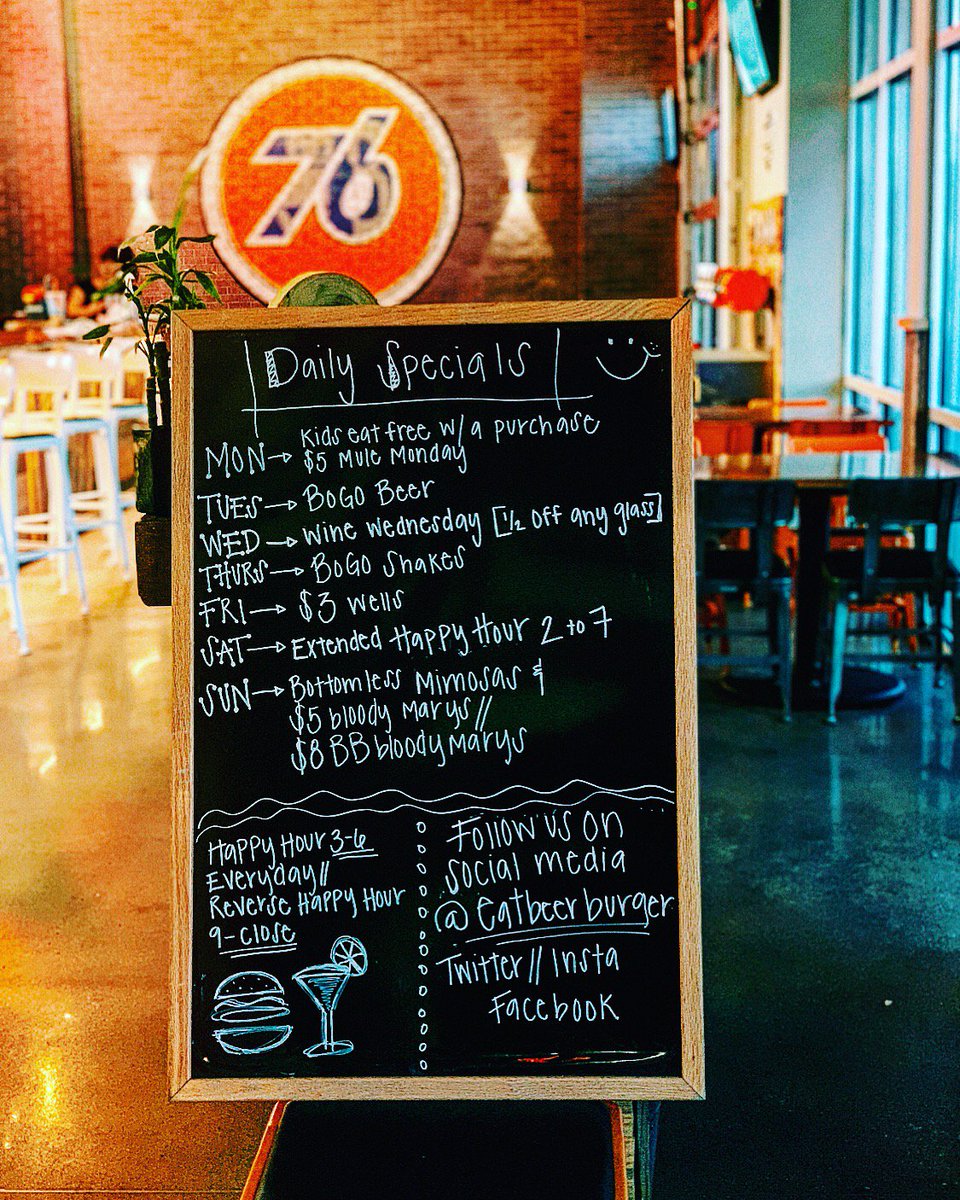 76
Daily Specials
MON → Kids eat free w/ a purchase
$5 Mule Monday
TUES → BOGO Beer
WED → Wine Wednesday [1/2 off any glass]
THURS → BOGO Shakes
FRI → $3 Wells
SAT → Extended Happy Hour 2 to 7
SUN → Bottomless Mimosas &
$5 bloody Marys //
$8 BB bloody Marys
Happy Hour 3-6
Everyday //
Reverse Happy Hour
9 - close
Follow us on
social media
@eatbeerburger
Twitter // Insta
Facebook